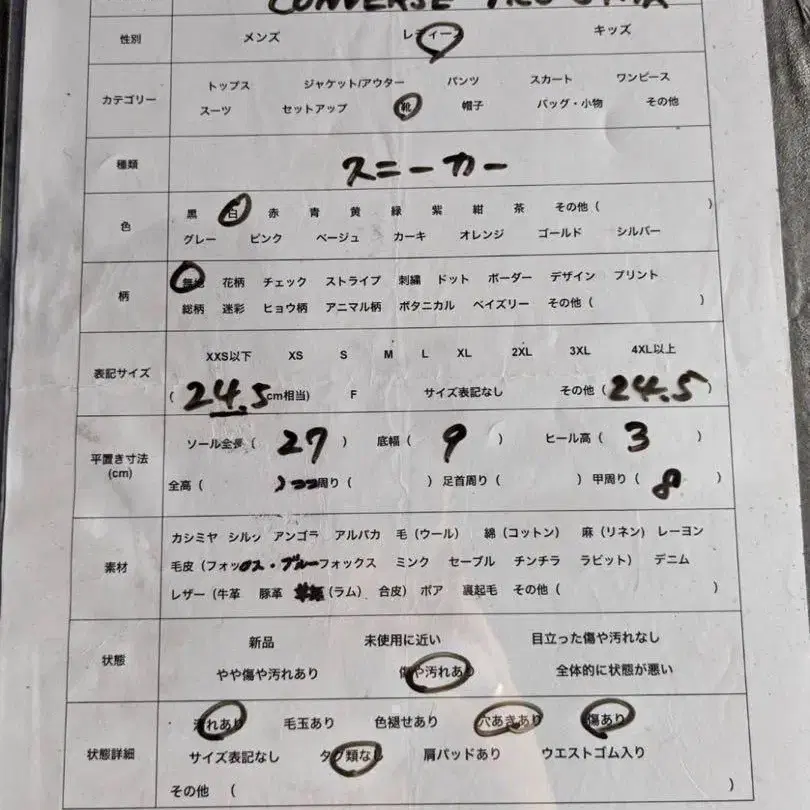 CONVERSE
性別 メンズ レディース キッズ
カテゴリー
トップス ジャケット/アウター パンツ スカート ワンピース
スーツ セットアップ 靴 帽子 バッグ・小物 その他
種類 スニーカー
色
黒 白 赤 青 黄 緑 紫 紺 茶 その他 ( )
グレー ピンク ベージュ カーキ オレンジ ゴールド シルバー
柄
無地 花柄 チェック ストライプ 刺繍 ドット ボーダー デザイン プリント
総柄 迷彩 ヒョウ柄 アニマル柄 ボタニカル ペイズリー その他 ( )
表記サイズ
XXS以下 XS S M L XL 2XL 3XL 4XL以上
( 24.5 cm相当) F サイズ表記なし その他 ( 24.5 )
平置き寸法
(cm)
ソール全長 ( 27 ) 底幅 ( 9 ) ヒール高 ( 3 )
全高 ( ) 周り ( ) 足首周り ( ) 甲周り ( 8 )
素材
カシミヤ シルク アンゴラ アルパカ 毛 (ウール) 綿 (コットン) 麻 (リネン) レーヨン
毛皮 (フォックス・ブルーフォックス ミンク セーブル チンチラ ラビット) デニム
レザー (牛革 豚革 (ラム) 合皮) ボア 裏起毛 その他 ( )
状態
新品 未使用に近い 目立った傷や汚れなし
やや傷や汚れあり 傷や汚れあり 全体的に状態が悪い
状態詳細
汚れあり 毛玉あり 色褪せあり 穴あきあり 傷あり
サイズ表記なし タグ類なし 肩パッドあり ウエストゴム入り
その他 ( )